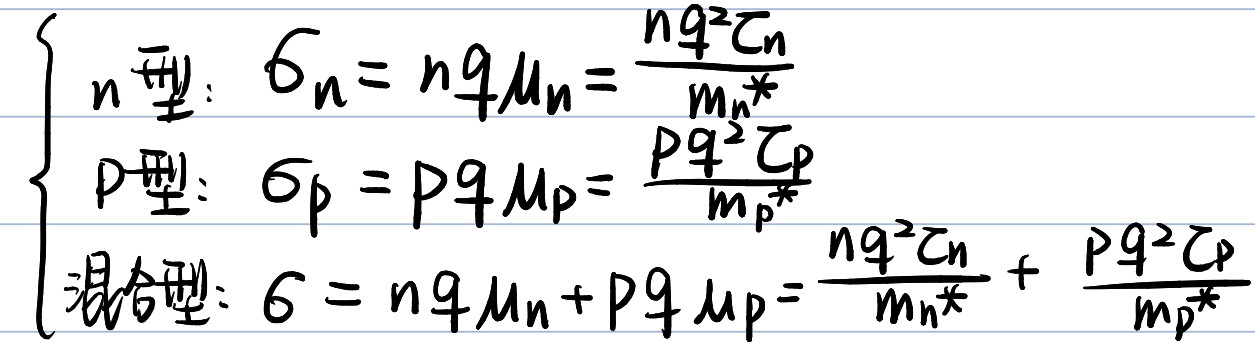 n型: σₙ = nqμₙ = nq²τₙ / mₙ*
p型: σₚ = pqμₚ = pq²τₚ / mₚ*
混合型: σ = nqμₙ + pqμₚ = nq²τₙ / mₙ* + pq²τₚ / mₚ*